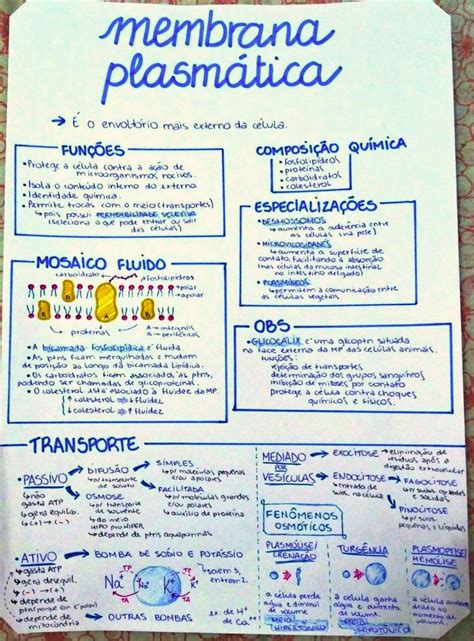 membrana
plasmática
→ É o envoltório mais externo da célula.
FUNÇÕES
• Protege a célula contra a ação de
microorganismos nocivos.
• Isola o conteúdo interno do externo
• Identidade química.
• Permite trocas com o meio (transportes)
↳ pois possui PERMEABILIDADE SELETIVA
(seleciona o que pode entrar ou sair
das células)
COMPOSIÇÃO QUÍMICA
• fosfolipídeos
• proteínas
• carboidratos
• colesterol
ESPECIALIZAÇÕES
• DESMOSSOMOS
↳ aumenta a aderência entre
as células (na pele)
• MICROVILOSIDADES
↳ aumenta a superfície de
contato, facilitando a absorção
(nas células da mucosa intestinal
no intestino delgado)
• PLASMODESMOS
↳ permitem a comunicação entre
as células vegetais
MOSAICO FLUIDO
carboidrato
fosfolipídeos
polar
apolar
proteínas
A → integrais
B → periféricas
• A bicamada fosfolipídica é fluida.
• As ptns ficam mergulhadas e mudam
de posição ao longo da bicamada lipídica.
• Os carboidratos ficam associados às ptns,
podendo ser chamadas de glicoproteínas.
• O colesterol está associado à fluidez da MP.
↑ colesterol → ↓ fluidez
↓ colesterol → ↑ fluidez
OBS
• GLICOCÁLIX é uma glicoptn situada
na face externa da MP das células animais.
Funções:
rejeição de transportes
determinação dos grupos sanguíneos
inibição de mitoses por contato
Protege a célula contra choques
químicos e físicos.
TRANSPORTE
• PASSIVO
↳ não
gasta ATP
↳ gera equilíb.
↳ (+) → (-)
DIFUSÃO
↳ p/ transporte
de soluto
SIMPLES
↳ p/ moléculas pequenas
e/ou apolares
FACILITADA
↳ p/ moléculas grandes
e/ou polares
↳ auxílio de proteína
OSMOSE
↳ p/ transporte
de solvente
↳ do meio
HIPO p/o HIPER
↳ depende da ptn aquaporinas
• ATIVO
↳ gasta ATP
↳ gera desequil.
↳ (-) → (+)
↳ depende de
ptn
↳ depende de
mitocôndria
BOMBA DE SÓDIO E POTÁSSIO
Na⁺
K⁺
saem 3,
entram 2.
OUTRAS BOMBAS → ex: de H⁺
de Ca⁺
MEDIADO
POR
VESÍCULAS
EXOCITOSE → eliminação de
resíduos após a
digestão extracelular
ENDOCITOSE
↳ entrada de
solut. na célula
FAGOCITOSE
↳ p/ subst. grandes
e sólidas
PINOCITOSE
↳ p/ subst.
pequenas e líquidas
FENÔMENOS
OSMÓTICOS
PLASMÓLISE/
CRENAÇÃO
a célula perde
água e diminui
o volume
↳ MEIO
HIPERTÔNICO
TURGÊNCIA
a célula ganha
água e aumenta
de volume
↳ MEIO
HIPOTÔNICO
HEMÓLISE
a célula ganha